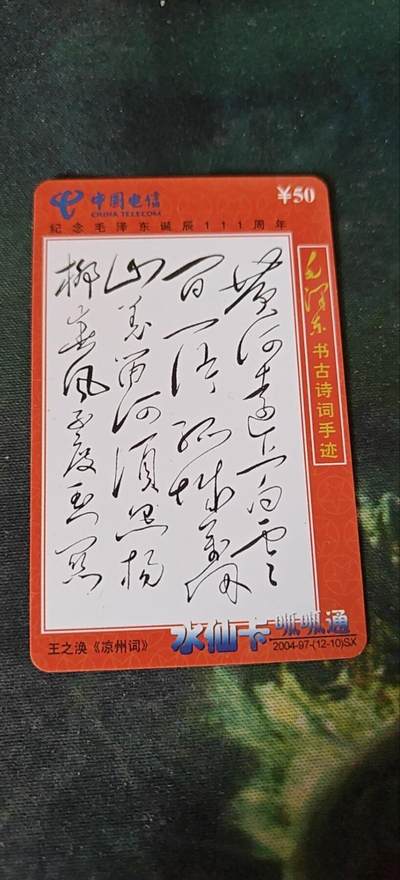 中国电信
CHINA TELECOM
¥50
纪念毛泽东诞辰111周年
毛泽东书古诗词手迹
黄河远上白云
间一片孤城万仞
山羌笛何须怨杨
柳春风不度玉门关
水仙卡呱呱通
王之涣《凉州词》
2004-97-(12-10)SX